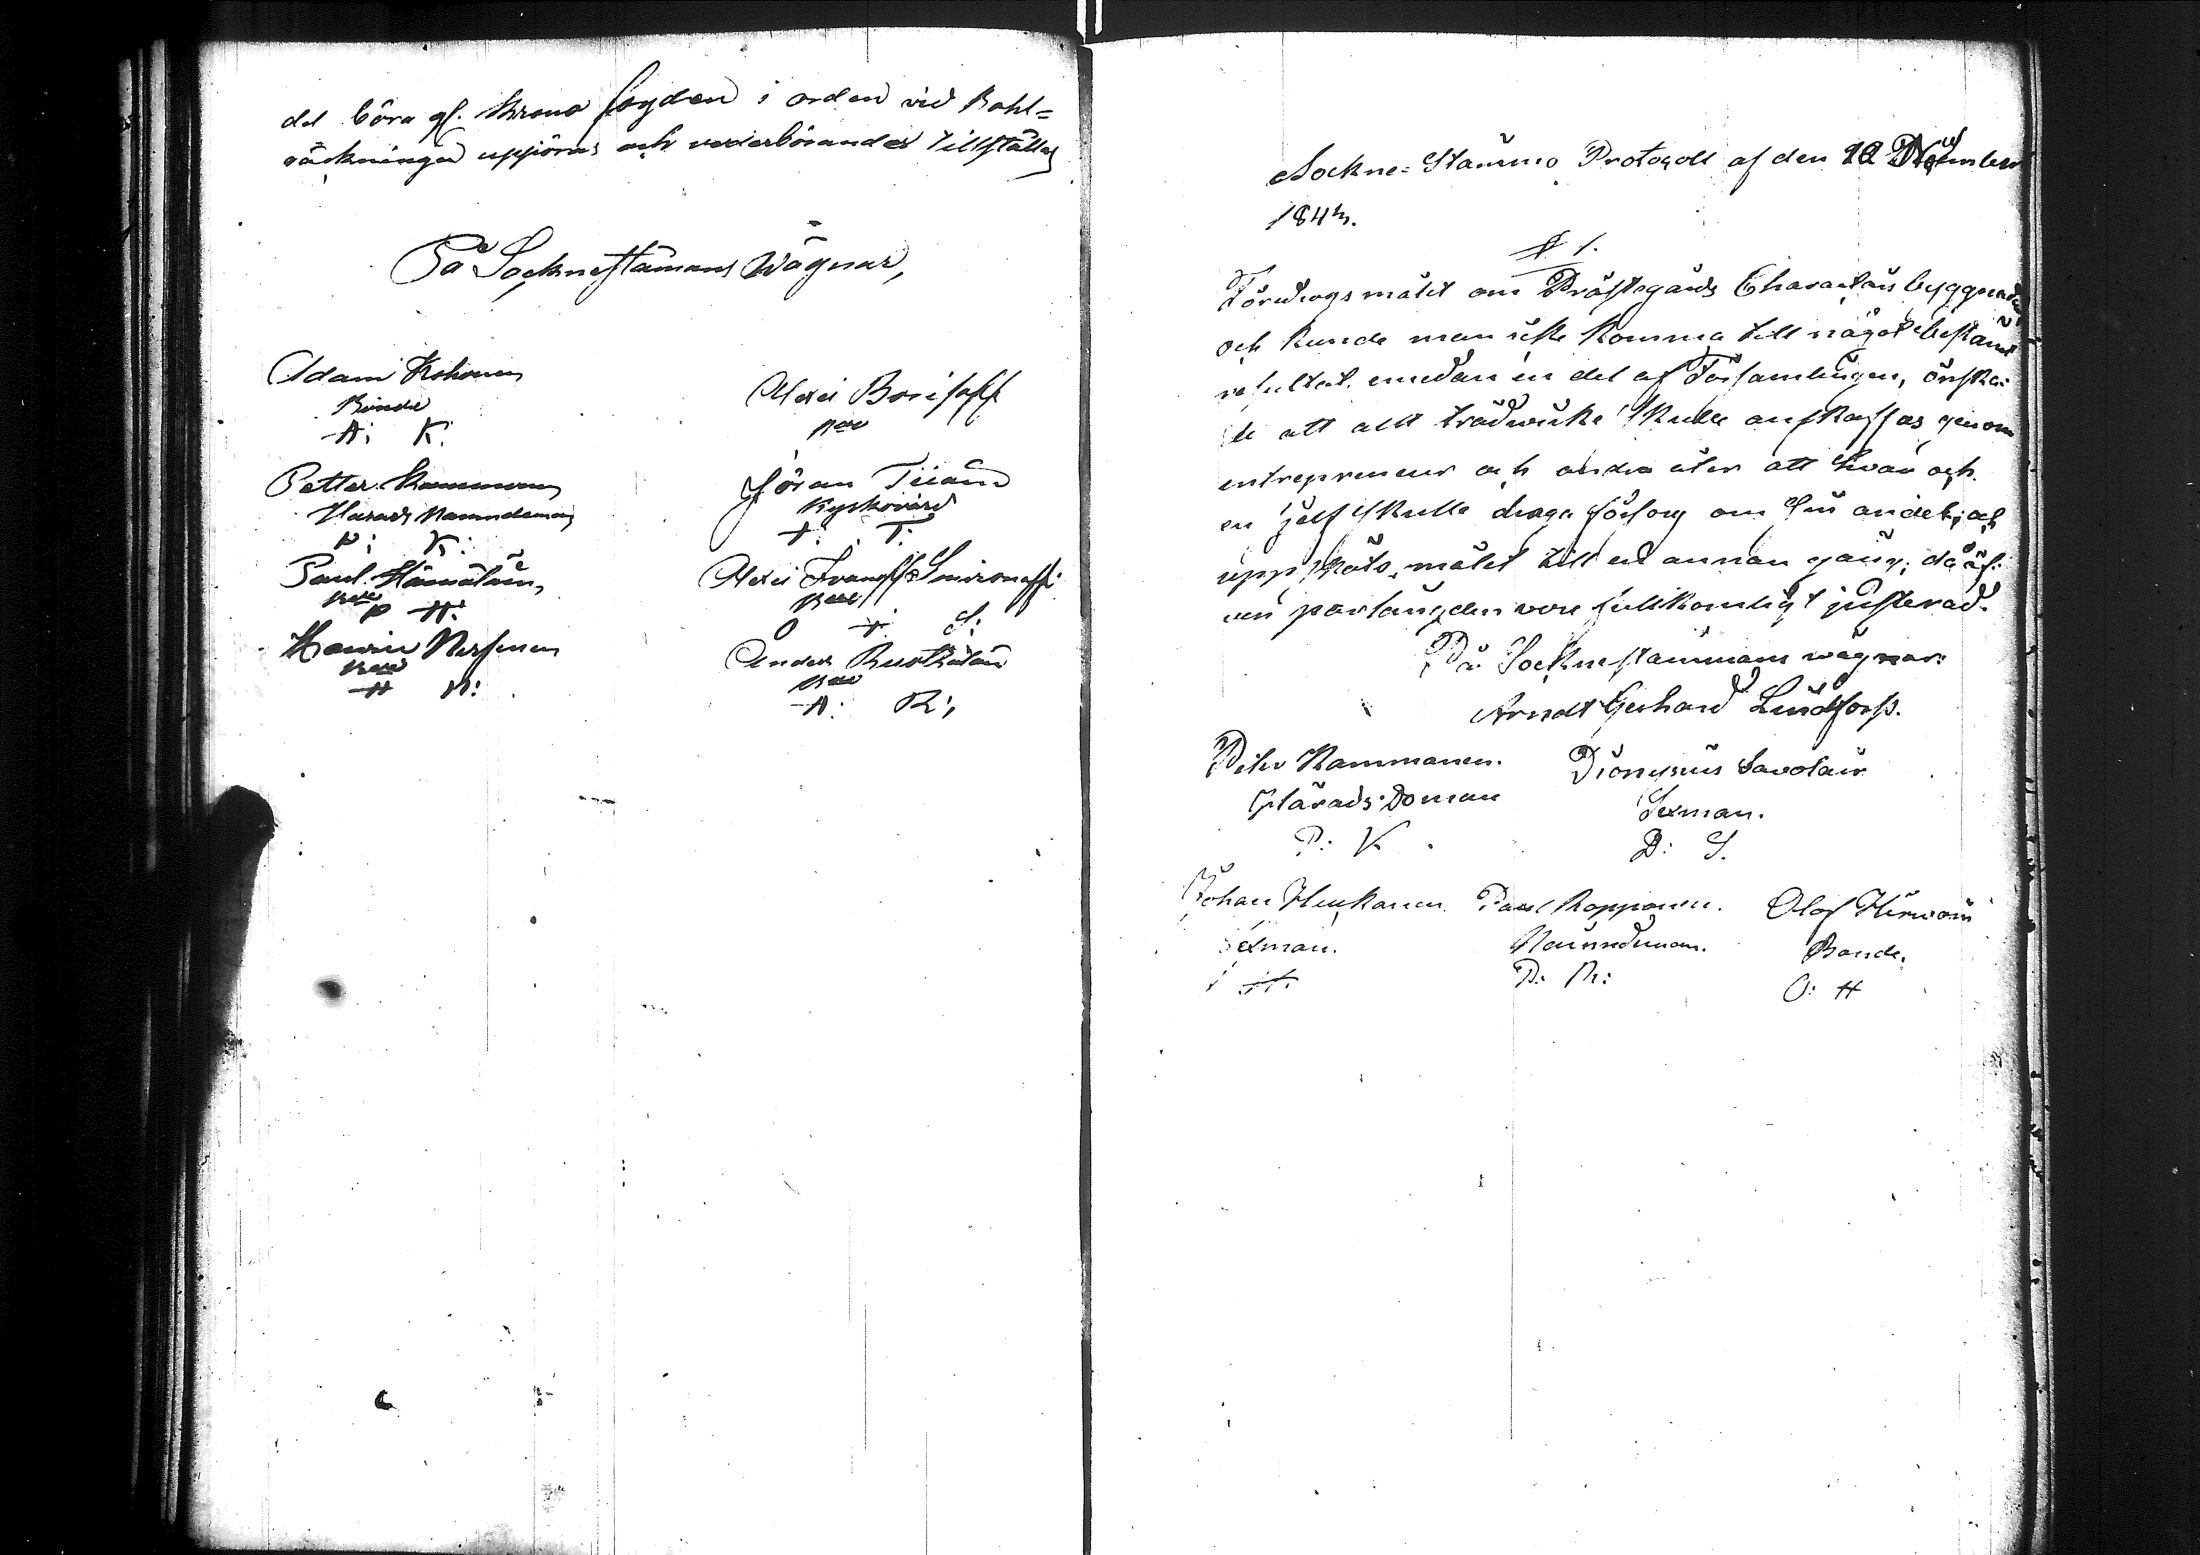 det böra gl. Krono fogden i orden vid Bohl=
räckningen uppjöras och vederbörander tillställas
På Sockneståmans Wägnar,
Adam Kohonen
Bonde
A: K:
Petter Kammonen
Härads Namndeman
P: K:
Paul Hämäläin,
P H:
Nersenen
H N:
Alexei Borisoff
Jöran Tiiain
Kyrkovärd
J: T:
Alexei Ivanoff Smirnoff:
S:
Anders Ruotkalain
A: R:,
Sockne-Stämmo Protocoll af den November
184
§ 1.
Föredrogs målet om Prästegårds Charactärs byggnaden
och kunde man icke komma till något bestämt
resultat. emedan en del af Församlingen, önska-
de att allt trädwirke skulle anskaffas genom
entrepreneur och andra åter att hwar och
en sjelf skulle draga försorg om sin andel; och
uppskåts målet till en annan gång; då äf-
ven parlängden vore fullkomligt justerad.
På Sockneståmmans wägnar:
Arndt Gerhard Lindforss.
Peter Kammonen.
Härads Doman
P: K
Dionysius Savolain
Sexman.
D: S.
Johan Huikanen.
Sexman.
H.
Paul Ropponen.
Nämndeman.
P: R:
Olof Hirwoin
Bonde.
O: H